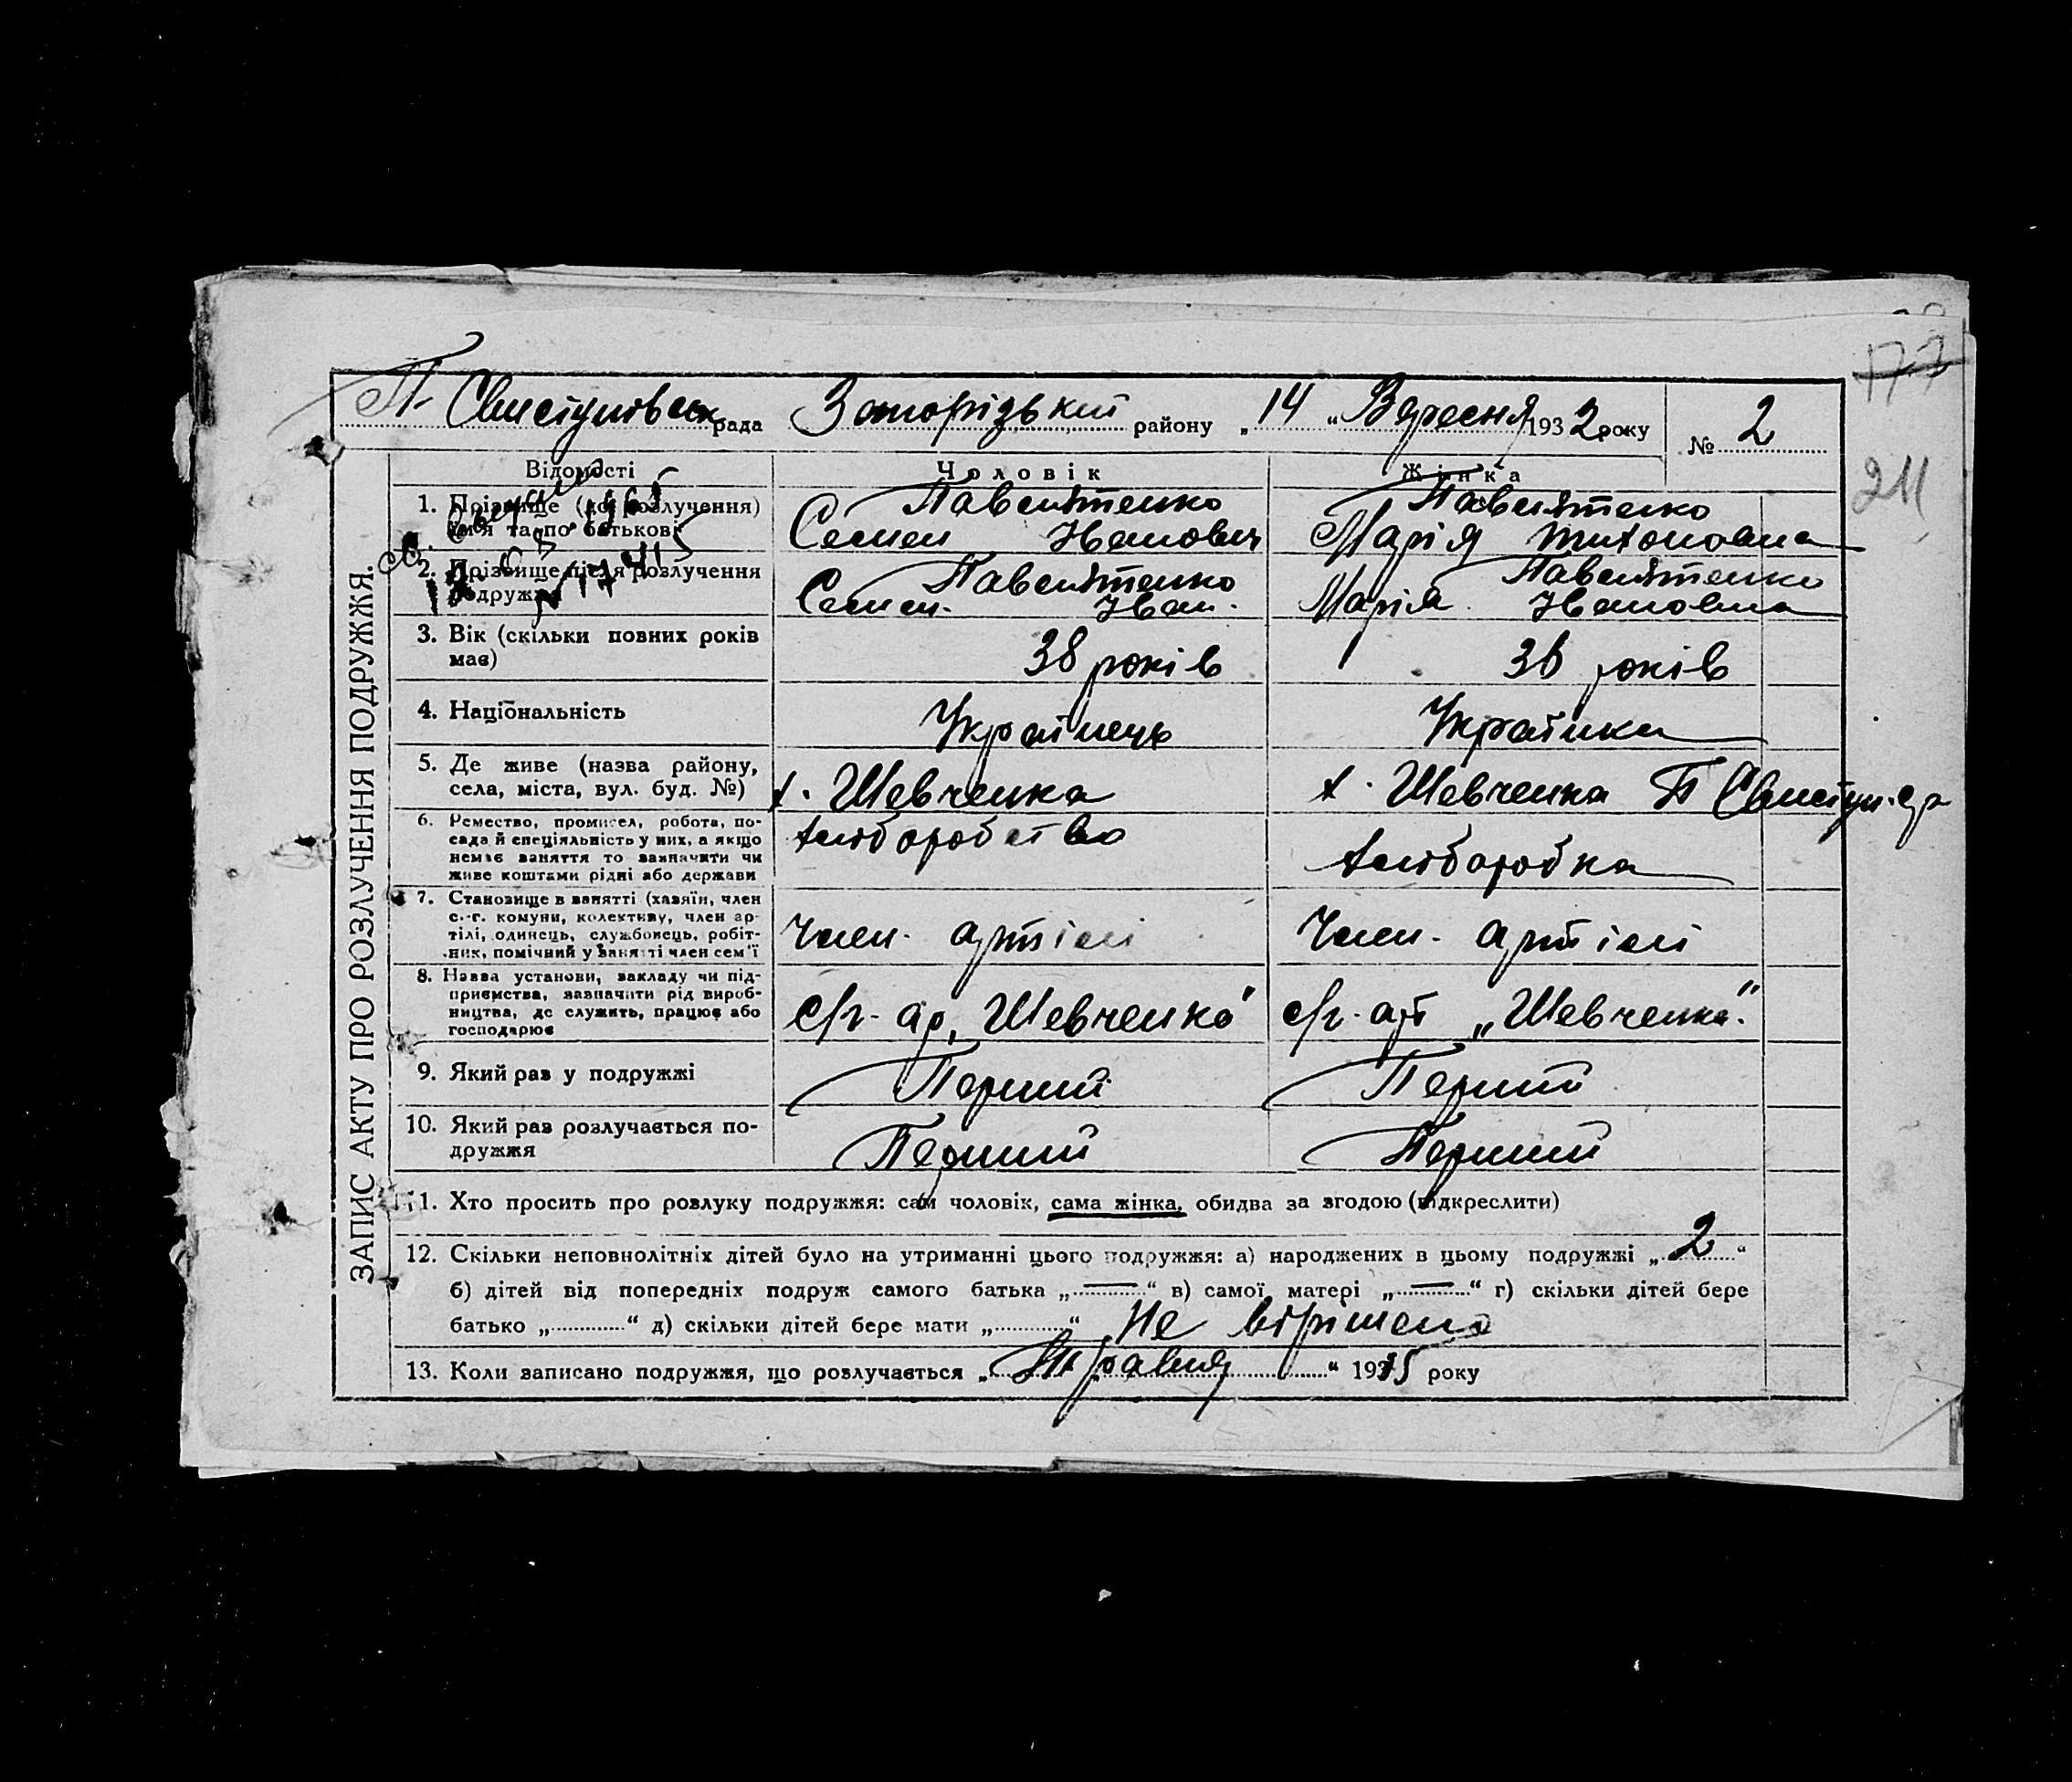 177
П. Свистунівськ рада Запорізький району „14 “ Вересня 1932 року № 2
211
ЗАПИС АКТУ ПРО РОЗЛУЧЕННЯ ПОДРУЖЖЯ.
Відомості Чоловік Жінка
1. Прізвище (до розлучення) ім'я та по батькові
Павлятенко
Семен Іванович
Павлятенко
Марія Тихоновна
2. Прізвище після розлучення подружжя
Павлятенко
Семен. Іван.
Павлятенко
Марія Івановна
3. Вік (скільки повних років
має)
38 років 36 років
4. Національність Українець Українка
5. Де живе (назва району,
села, міста, вул. буд. №)
х. Шевченка х. Шевченка П Свистун. с/р
6. Ремество, промисел, робота, по-
сада й спеціяльність у них, а якщо
немає заняття то зазначити чи
живе коштами рідні або держави
хліборобство хліборобка
7. Становище в занятті (хазяїн, член
с.-г. комуни, колективу, член ар-
тілі, одинець, службовець, робіт-
ник, помічний у занятті член сем'ї
Член. артілі Член. артілі
8. Назва установи, закладу чи під-
приємства, зазначити рід вироб-
ництва, де служить, працює або
господарює
с/г. ар, Шевченко" с/г. арт „Шевченка".
9. Який раз у подружжі Перший Перший
10. Який раз розлучається по-
дружжя
Перший Перший
11. Хто просить про розлуку подружжя: сам чоловік, сама жінка, обидва за згодою (підкреслити)
12. Скільки неповнолітніх дітей було на утриманні цього подружжя: а) народжених в цьому подружжі „ 2 “
б) дітей від попередніх подруж самого батька „ — “ в) самої матері „ — “ г) скільки дітей бере
батько „ “ д) скільки дітей бере мати „ “ Не вірішено
13. Коли записано подружжя, що розлучається „ Травня “ 1915 року